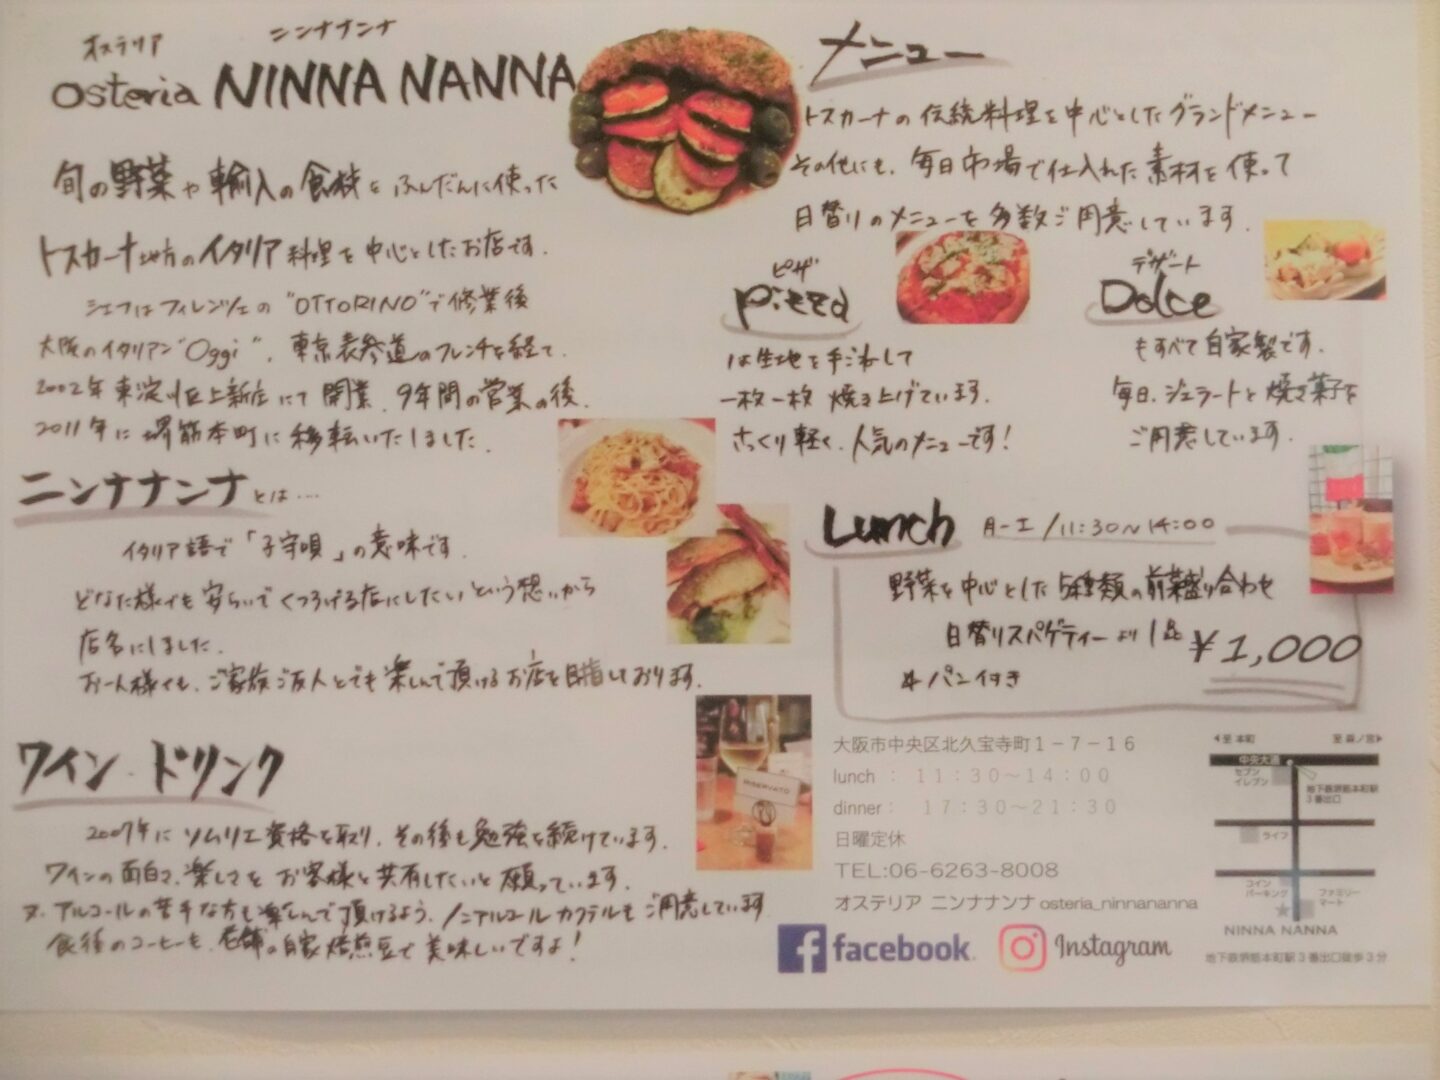 オステリア ニンナナンナ
osteria NINNA NANNA
旬の野菜や輸入の食材をふんだんに使った
トスカーナ地方のイタリア料理を中心としたお店です.
シェフはフィレンツェの"OTTORINO"で修業後
大阪のイタリアン"Oggi", 東京表参道のフレンチを経て.
2002年東淀川区上新庄にて開業. 9年間の営業の後.
2011年に堺筋本町に移転いたしました.
ニンナナンナとは‥‥
イタリア語で「子守唄」の意味です.
どなた様でも安らいでくつろげる店にしたいという想いから
店名にしました.
お一人様でも、ご家族ご友人とでも楽しんで頂けるお店を目指しております.
ワイン・ドリンク
2007年にソムリエ資格を取り, その後も勉強を続けています.
ワインの面白さ、楽しさをお客様と共有したいと願っています.
又、アルコールの苦手な方も楽しんで頂けるよう、ノンアルコールカクテルもご用意しています
食後のコーヒーも、老舗の自家焙煎豆で美味しいですよ!
メニュー
トスカーナの伝統料理を中心としたグランドメニュー
その他にも、毎日市場で仕入れた素材を使って
日替りのメニューを多数ご用意しています.
ピザ
pizza
は生地を手ごねして
一枚一枚焼き上げています.
さっくり軽く、人気のメニューです!
デザート
Dolce
もすべて自家製です.
毎日、ジェラートと焼き菓子を
ご用意しています.
Lunch 月-土/11:30~14:00
野菜を中心とした5種類の前菜盛り合わせ
日替りスパゲティーより1品
¥1,000
パン付き
RISERVATO
大阪市中央区北久宝寺町1-7-16
lunch : 11:30~14:00
dinner : 17:30~21:30
日曜定休
TEL:06-6263-8008
オステリア ニンナナンナ osteria_ninnananna
facebook. Instagram
至 本町 至 森ノ宮
中央大通
セブン
イレブン
地下鉄堺筋本町駅
3番出口
ライフ
コイン
パーキング
ファミリー
マート
NINNA NANNA
地下鉄堺筋本町駅3番出口徒歩3分